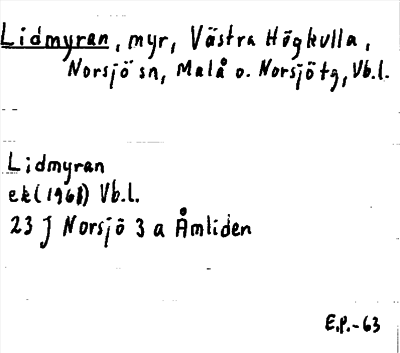 Lidmyran, myr, Västra Högkulla,
Norsjö sn, Malå o. Norsjö tg, Vb.l.
Lidmyran
ek (1968) Vb.l.
23 J Norsjö 3 a Åmliden
E.P.-63